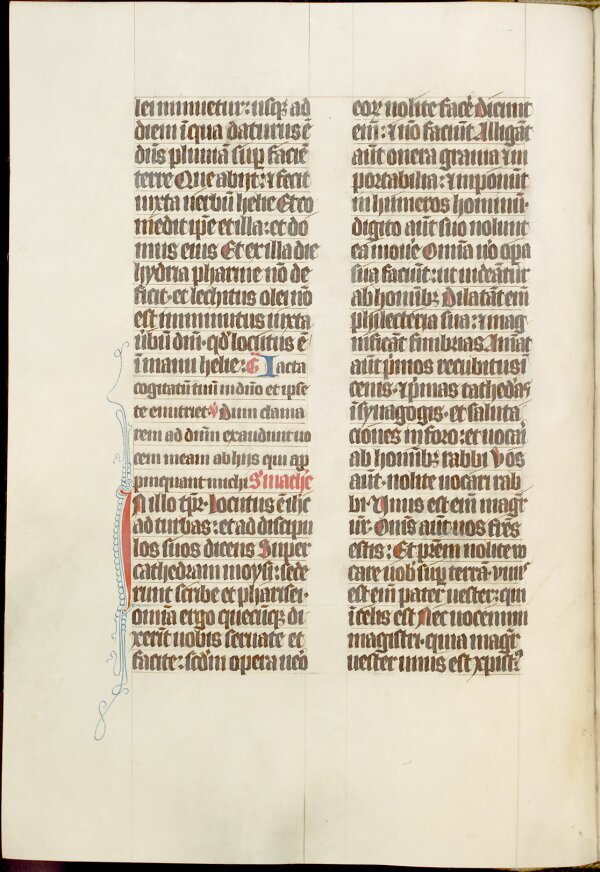 lei minuetur: usq; ad
diem ī qua daturus ē
dn̄s pluuiā sup faciē
terre Que abijt: ⁊ fecit
iuxta uerbū helie Et co
medit ip̄e et illa: et do
mus eius Et ex illa die
hydria pharine nō de
ficit· et lechitus olei nō
est imminutus iuxta
ūbū dn̄i· qd̄ locutus ē
ī manu helie: Gͣ Iacta
cogitatū tuū in dn̄o et ipse
te enutriet ℣ Dum clama
rem ad dn̄m exaudiuit uo
cem meam ab hijs qui ap
pinquant michi S' mathe
In illo tp̄r· Locutus ē ih̄c
ad turbas: et ad discipu
los suos dicens Super
cathedram moysi: sede
runt scribe et pharisei·
omīa ergo quecūq; di
xerīt uobis seruate et
facite: scd̄m opera uēo
eoꝝ nolite facē Dicunt
eī: ⁊ nō faciūt Alligāt
aūt onera grauia ⁊ in
portabilia: ⁊ imponūt
in humeros hominū·
digito aūt suo nolunt
ea mouē Omīa ūo opa
sua faciūt: ut uideātur
ab homībꝫ Dilatāt eī
philecteria sua: ⁊ mag
nificāt fimbrias Amāt
aūt pͥmos recubitus ī
cenis· ⁊ pͥmas cathedͣs
ī synagogis· et saluta
ciones in foro: et uocari
ab homībꝫ rabbi Vos
aūt· nolite uocari rab
bi· Vnus est eī magr̄
ur̄· Om̄s aūt uos frēs
estis: Et p̄rem nolite uo
care uob̄ sup terrā· vnus
est eī pater uester: qui
ī celis est Nec uocemini
magistri· quia magr̄
uester unus est xpist9